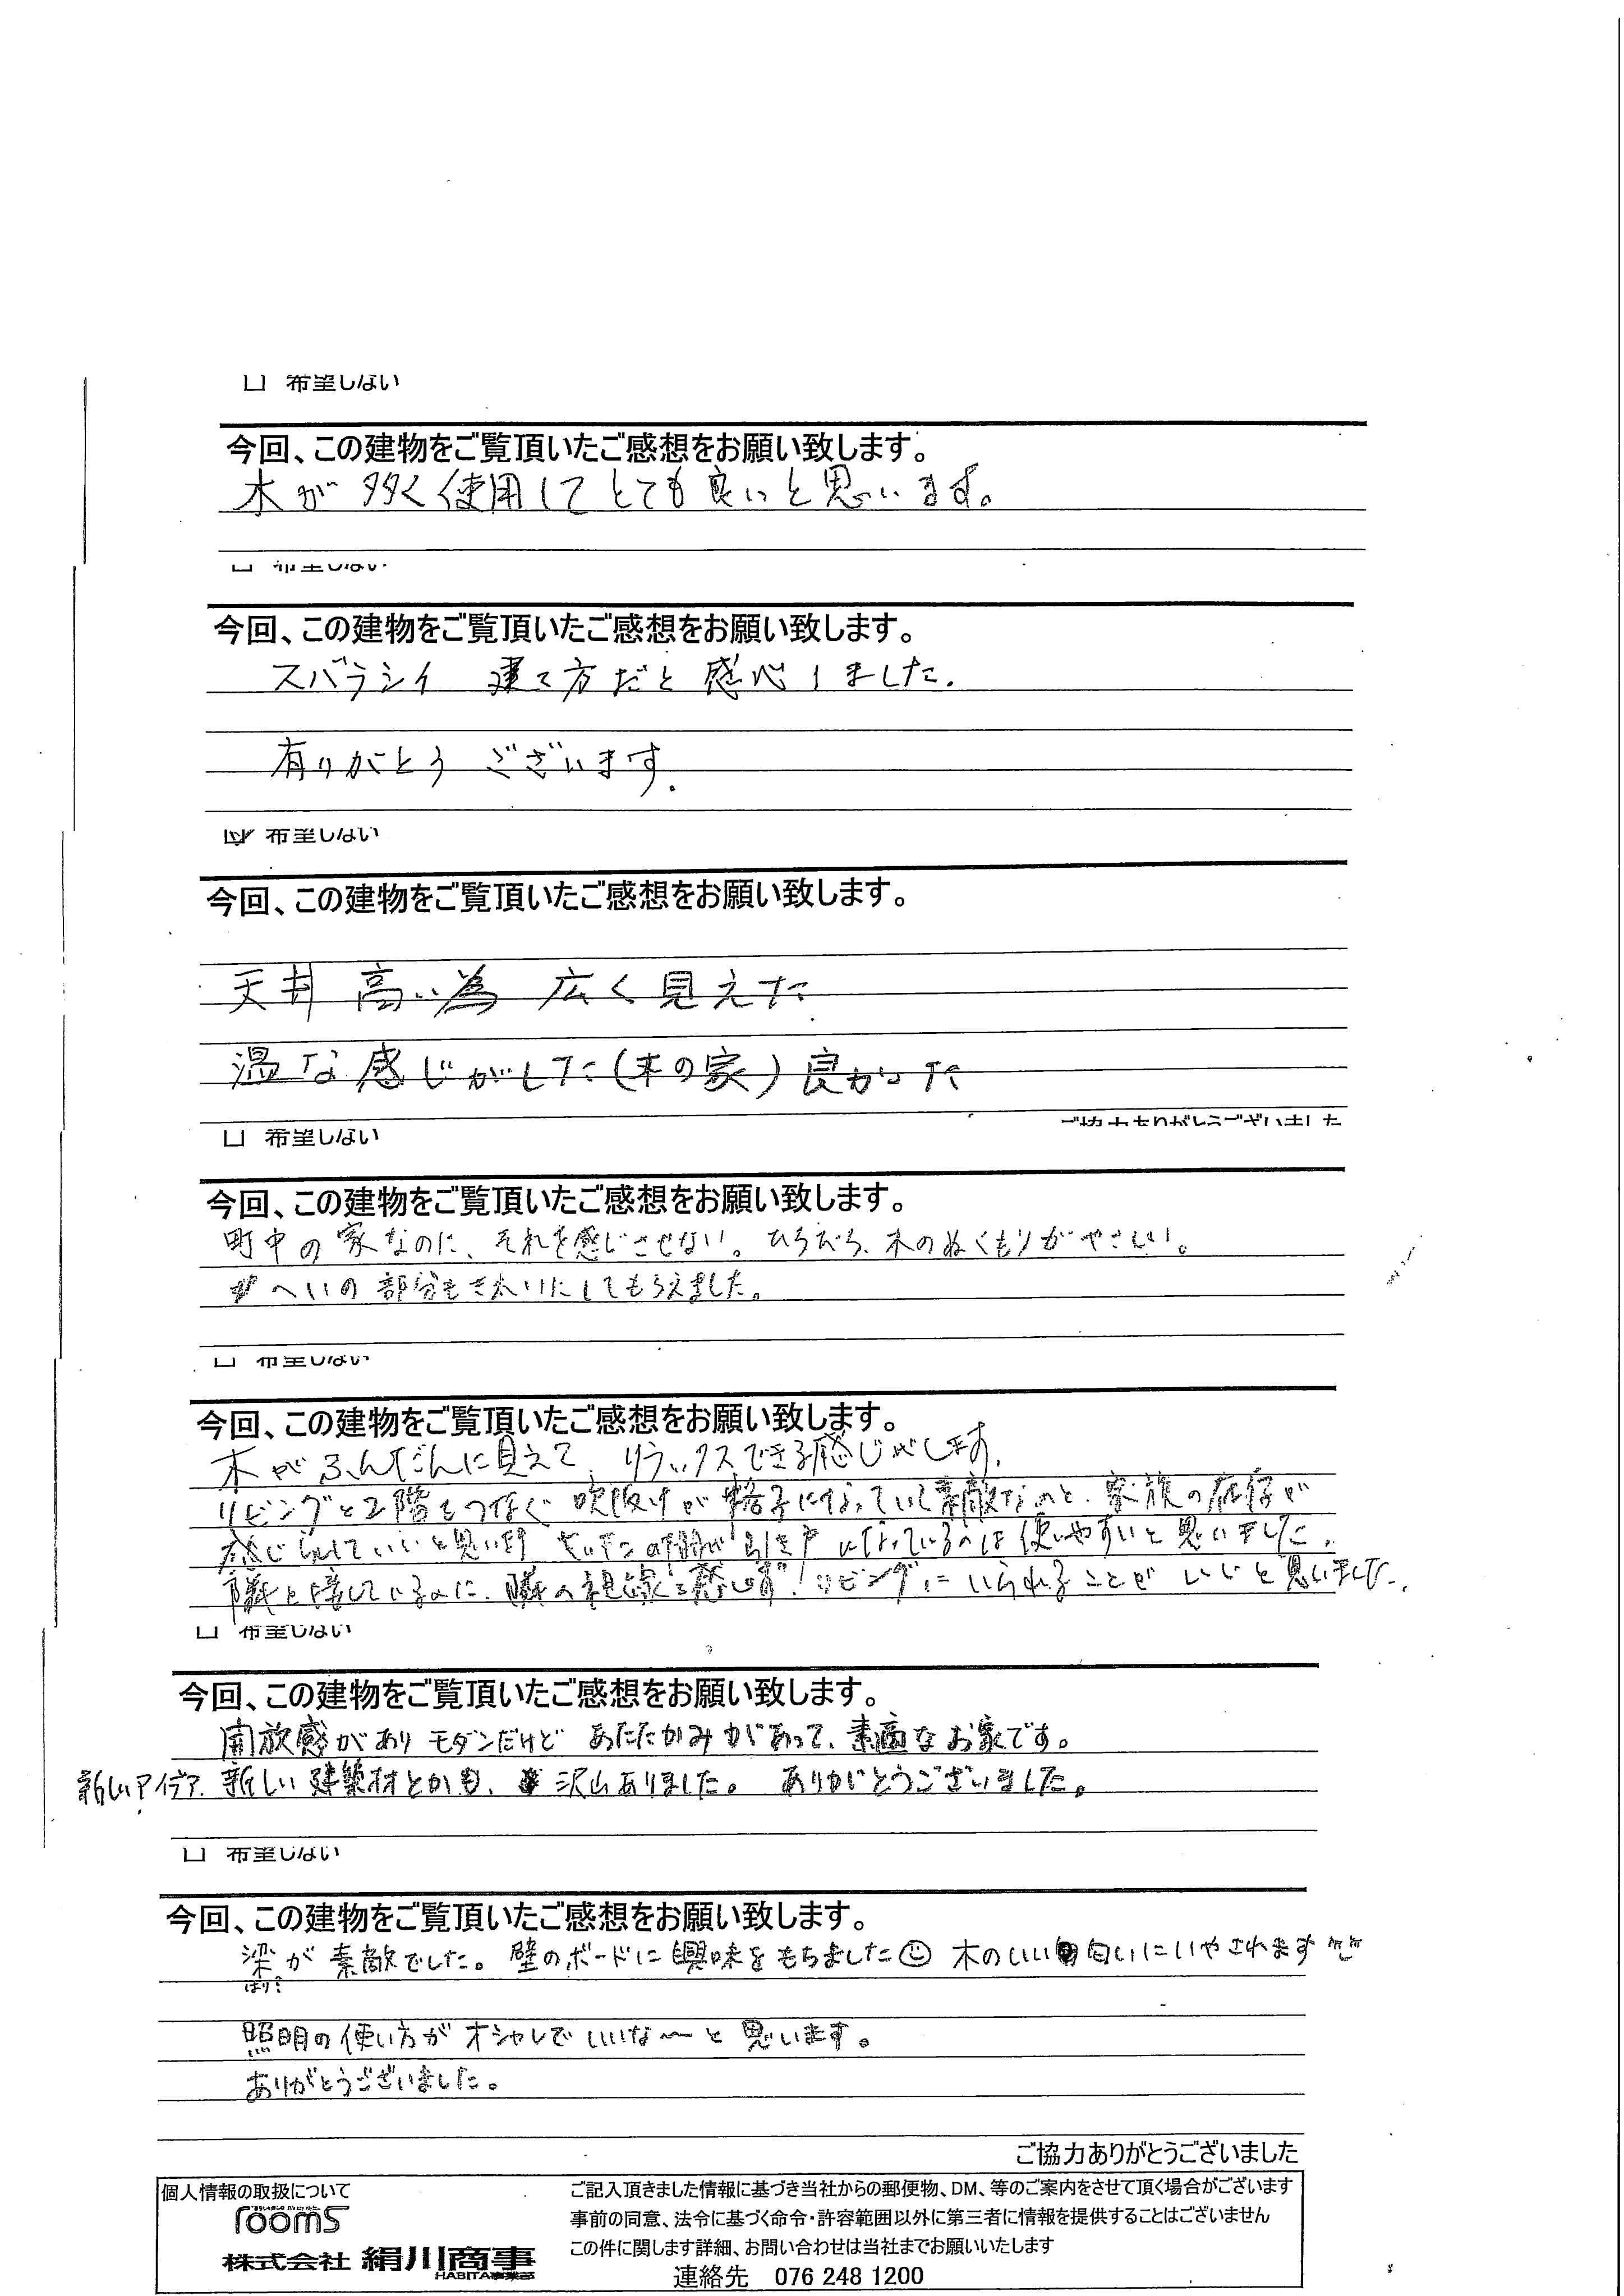 希望しない
今回、この建物をご覧頂いたご感想をお願い致します。
木が多く使用してとても良いと思います。
希望しない
今回、この建物をご覧頂いたご感想をお願い致します。
スバラシイ 建て方だと感心しました.
有りがとう ございます.
希望しない
今回、この建物をご覧頂いたご感想をお願い致します。
天井 高い為 広く見えた
温な感じがした(木の家)良かった
ご協力ありがとうございました
希望しない
今回、この建物をご覧頂いたご感想をお願い致します。
町中の家なのに、それを感じさせない。ひらたら、木のぬくもりがやさしい。
へいの部分もきれいにしてもらえました。
希望しない
今回、この建物をご覧頂いたご感想をお願い致します。
木がふんだんに見えて、リラックスできる感じがします。
リビングと2階をつなぐ吹抜けが格子になっていて素敵なのと、家族の存在が
感じられていいと思います キッチンの 引き戸になっているのは使いやすいと思いました。
隣と接しているのに、隣の視線を感じず!リビングにいられることがいいと思いました。
希望しない
今回、この建物をご覧頂いたご感想をお願い致します。
開放感がありモダンだけど あたたかみがあって、素適なお家です。
新しいアイデア、新しい建築材とかも、沢山ありました。 ありがとうございました。
希望しない
今回、この建物をご覧頂いたご感想をお願い致します。
梁が素敵でした。壁のボードに興味をもちました☺ 木のいい匂いにいやされます^^
はり?
照明の使い方がオシャレでいいな〜と思います。
ありがとうございました。
ご協力ありがとうございました
個人情報の取扱について
rooms
株式会社 絹川商事
HABITA事業部
ご記入頂きました情報に基づき当社からの郵便物、DM、等のご案内をさせて頂く場合がございます
事前の同意、法令に基づく命令・許容範囲以外に第三者に情報を提供することはございません
この件に関します詳細、お問い合わせは当社までお願いいたします
連絡先 076 248 1200